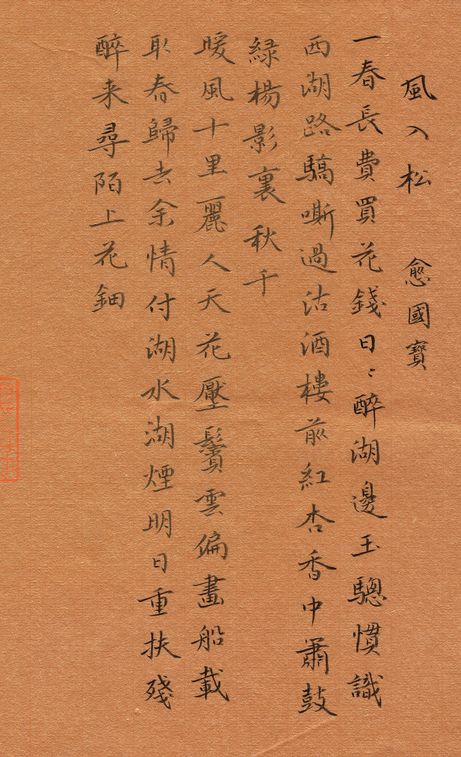 風入松 愈國寶
一春長費買花錢日〻醉湖邊玉驄慣識
西湖路驕嘶過沽酒樓前紅杏香中蕭鼓
緑楊影裏秋千
暖風十里麗人天花壓鬢雲偏畫船載
取春歸去余情付湖水湖煙明日重扶殘
醉来尋陌上花鈿